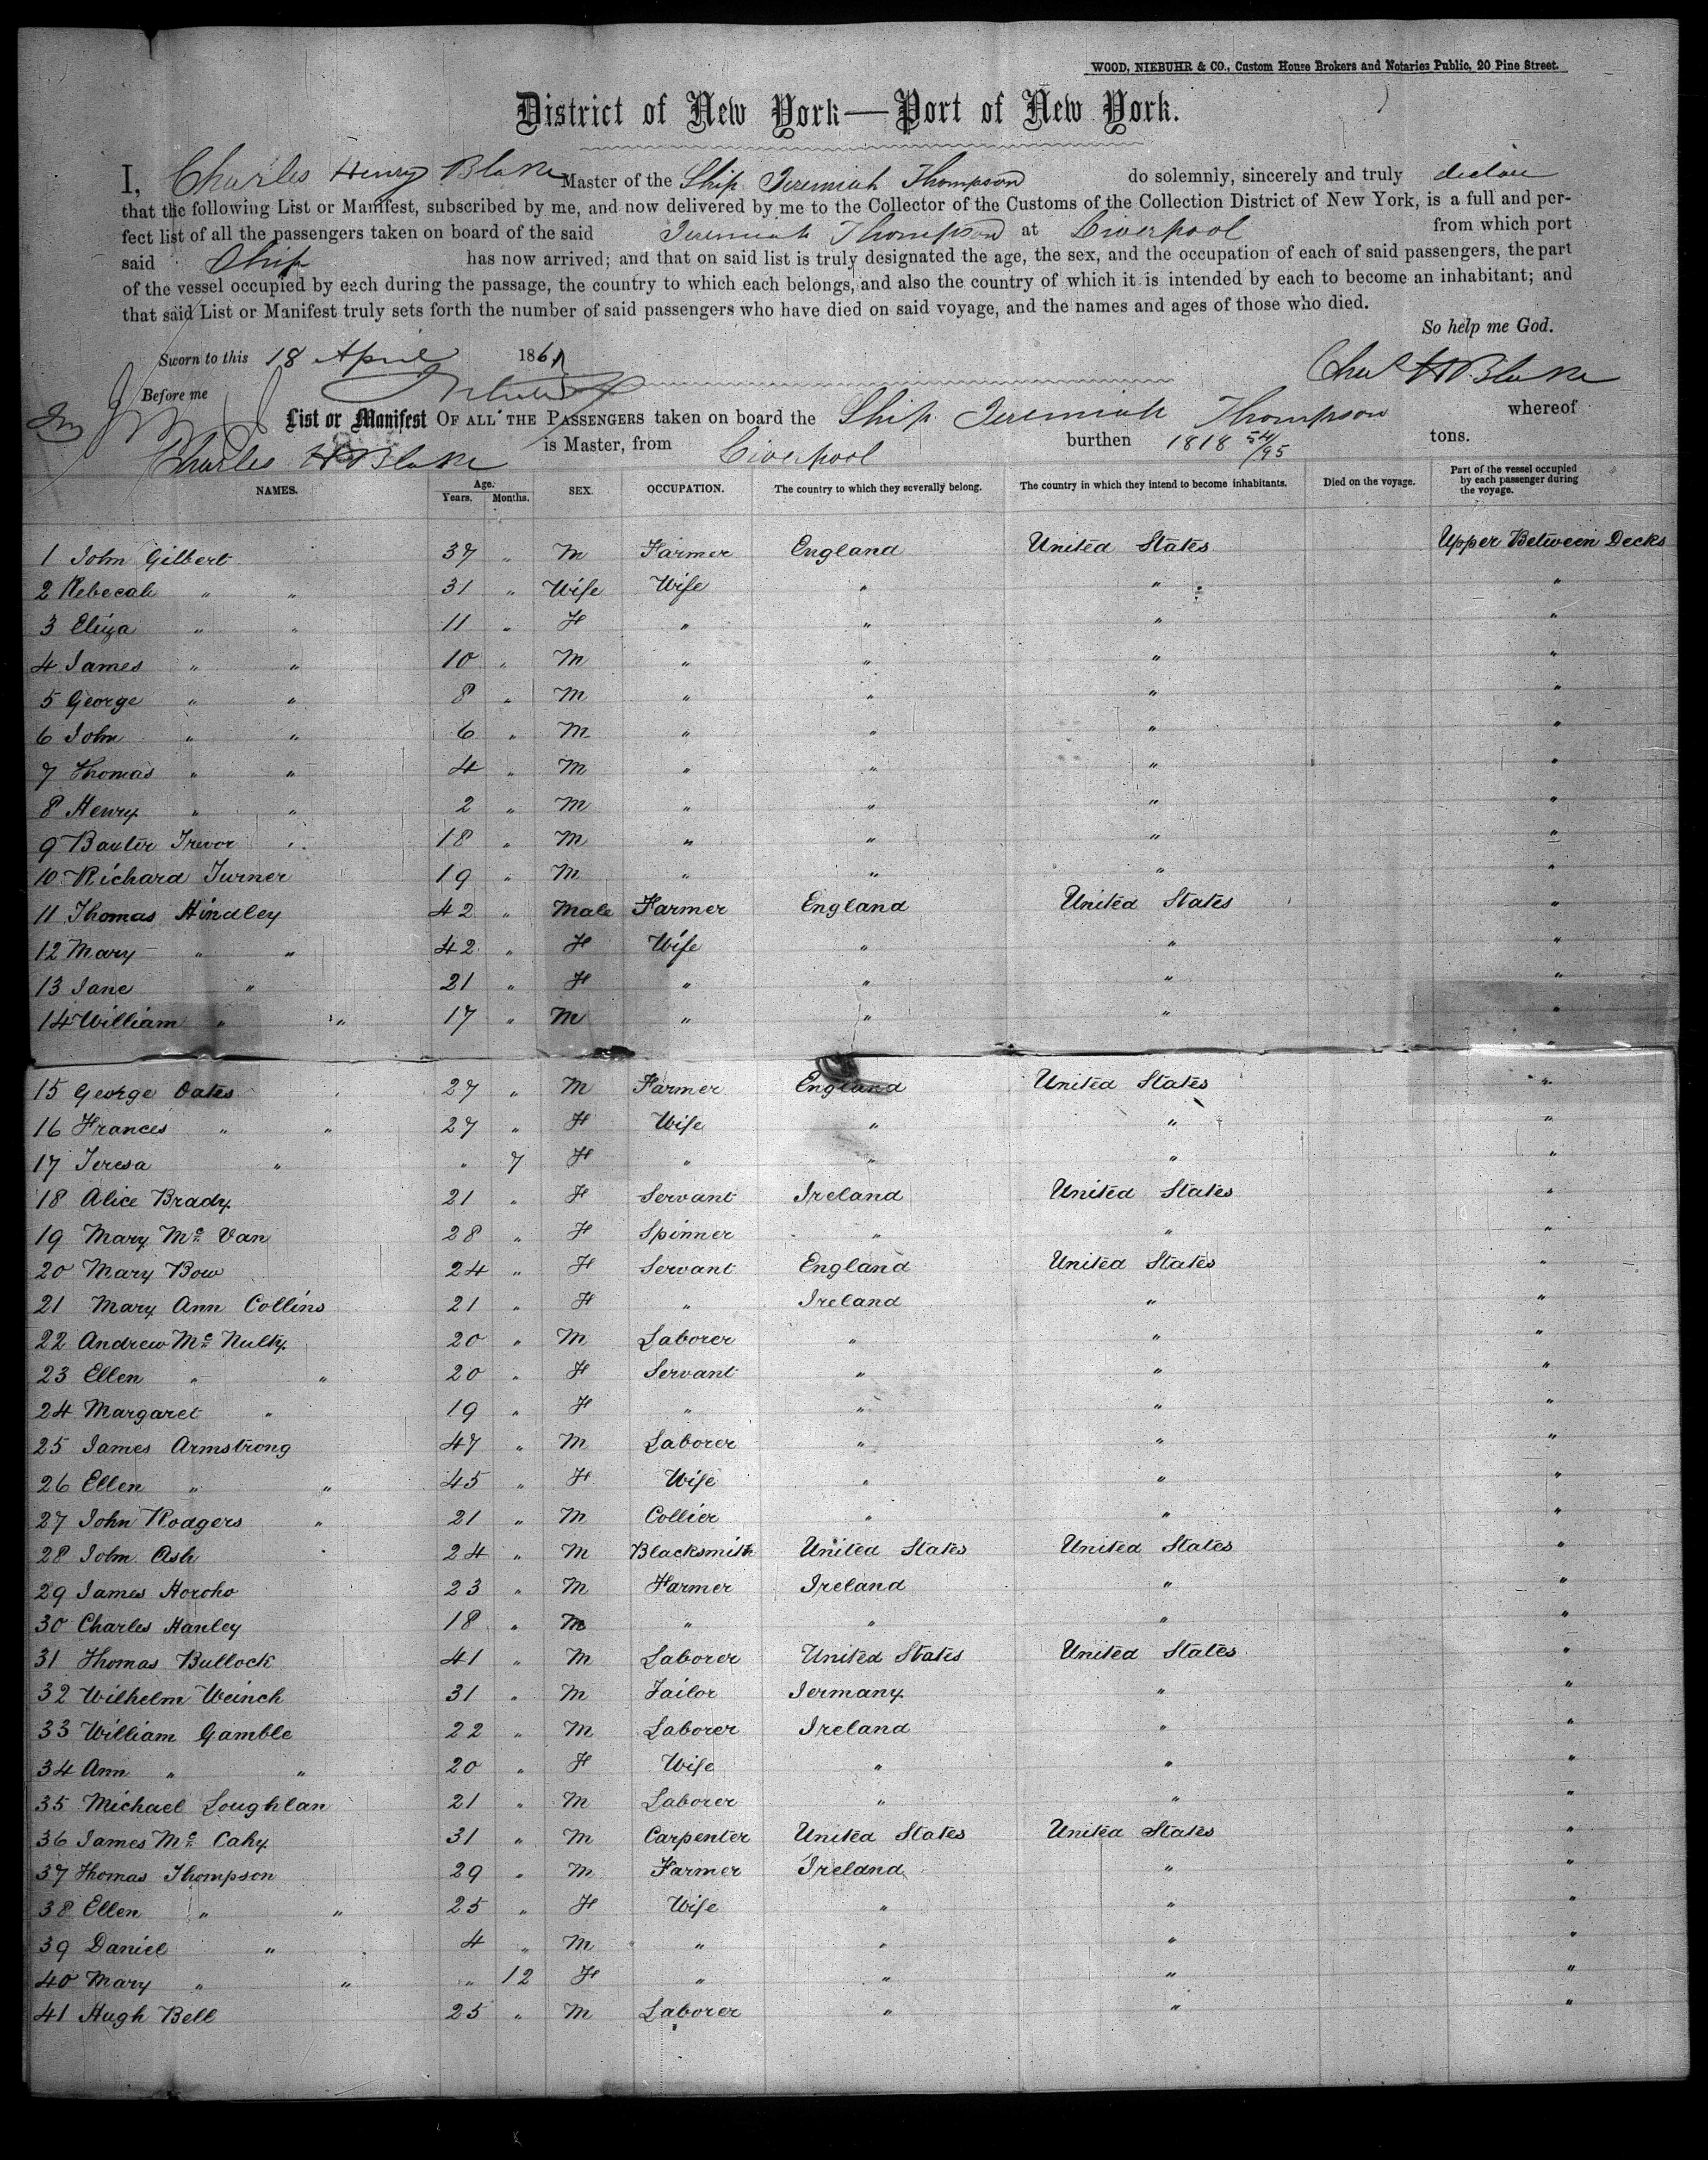 WOOD, NIEBUHR & CO., Custom House Brokers and Notaries Public, 20 Pine Street.
District of New York—Port of New York.
I, Charles Henry Blake Master of the Ship Jeremiah Thompson do solemnly, sincerely and truly declare
that the following List or Manifest, subscribed by me, and now delivered by me to the Collector of the Customs of the Collection District of New York, is a full and per-
fect list of all the passengers taken on board of the said Jeremiah Thompson at Liverpool from which port
said Ship has now arrived; and that on said list is truly designated the age, the sex, and the occupation of each of said passengers, the part
of the vessel occupied by each during the passage, the country to which each belongs, and also the country of which it is intended by each to become an inhabitant; and
that said List or Manifest truly sets forth the number of said passengers who have died on said voyage, and the names and ages of those who died.
So help me God.
Sworn to this 18 April 1861
Chas H Blake
Before me
List or Manifest OF ALL THE PASSENGERS taken on board the Ship Jeremiah Thompson whereof
Charles H Blake is Master, from Liverpool burthen 1818 54/95 tons.
NAMES. Age. Years. Months. SEX. OCCUPATION. The country to which they severally belong. The country in which they intend to become inhabitants. Died on the voyage. Part of the vessel occupied by each passenger during the voyage.
1 John Gilbert 37 " M Farmer England United States Upper Between Decks
2 Rebecah " " 31 " Wife Wife " " "
3 Eliza " " 11 " F " " " "
4 James " " 10 " M " " " "
5 George " " 8 " M " " " "
6 John " " 6 " M " " " "
7 Thomas " " 4 " M " " " "
8 Henry " " 2 " M " " " "
9 Baxter Trevor " 18 " M " " " "
10 Richard Turner 19 " M " " " "
11 Thomas Hindley 42 " Male Farmer England United States "
12 Mary " " 42 " F Wife " " "
13 Jane " 21 " F " " " "
14 William " " 17 " M " " " "
15 George Oates 27 " M Farmer England United States "
16 Frances " " 27 " F Wife " " "
17 Teresa " " 7 F " " " "
18 Alice Brady 21 " F Servant Ireland United States "
19 Mary Mc Van 28 " F Spinner " " "
20 Mary Bow 24 " F Servant England United States "
21 Mary Ann Collins 21 " F " Ireland " "
22 Andrew Mc Nulty 20 " M Laborer " " "
23 Ellen " " 20 " F Servant " " "
24 Margaret " 19 " F " " " "
25 James Armstrong 47 " M Laborer " " "
26 Ellen " " 45 " F Wife " " "
27 John Rodgers " 21 " M Collier " " "
28 John Ash 24 " M Blacksmith United States United States "
29 James Horoho 23 " M Farmer Ireland " "
30 Charles Hanley 18 " M " " " "
31 Thomas Bullock 41 " M Laborer United States United States "
32 Wilhelm Weinch 31 " M Tailor Germany " "
33 William Gamble 22 " M Laborer Ireland " "
34 Ann " " 20 " F Wife " " "
35 Michael Loughlan 21 " M Laborer " " "
36 James Mc Cahy 31 " M Carpenter United States United States "
37 Thomas Thompson 29 " M Farmer Ireland " "
38 Ellen " " 25 " F Wife " " "
39 Daniel " 4 " M " " " "
40 Mary " " " 12 F " " " "
41 Hugh Bell 25 " M Laborer " " "